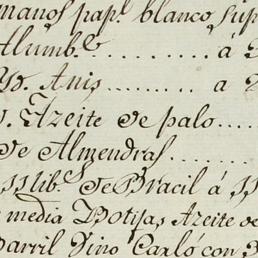 manos papl. blanco sup
Alumbe........ á
Yd. Anis......... a 2
Azeite de palo.....
de Almendras......
11 lib.s de Bracil á 11
media Botijas Azeite de
Barril Vino Carló con